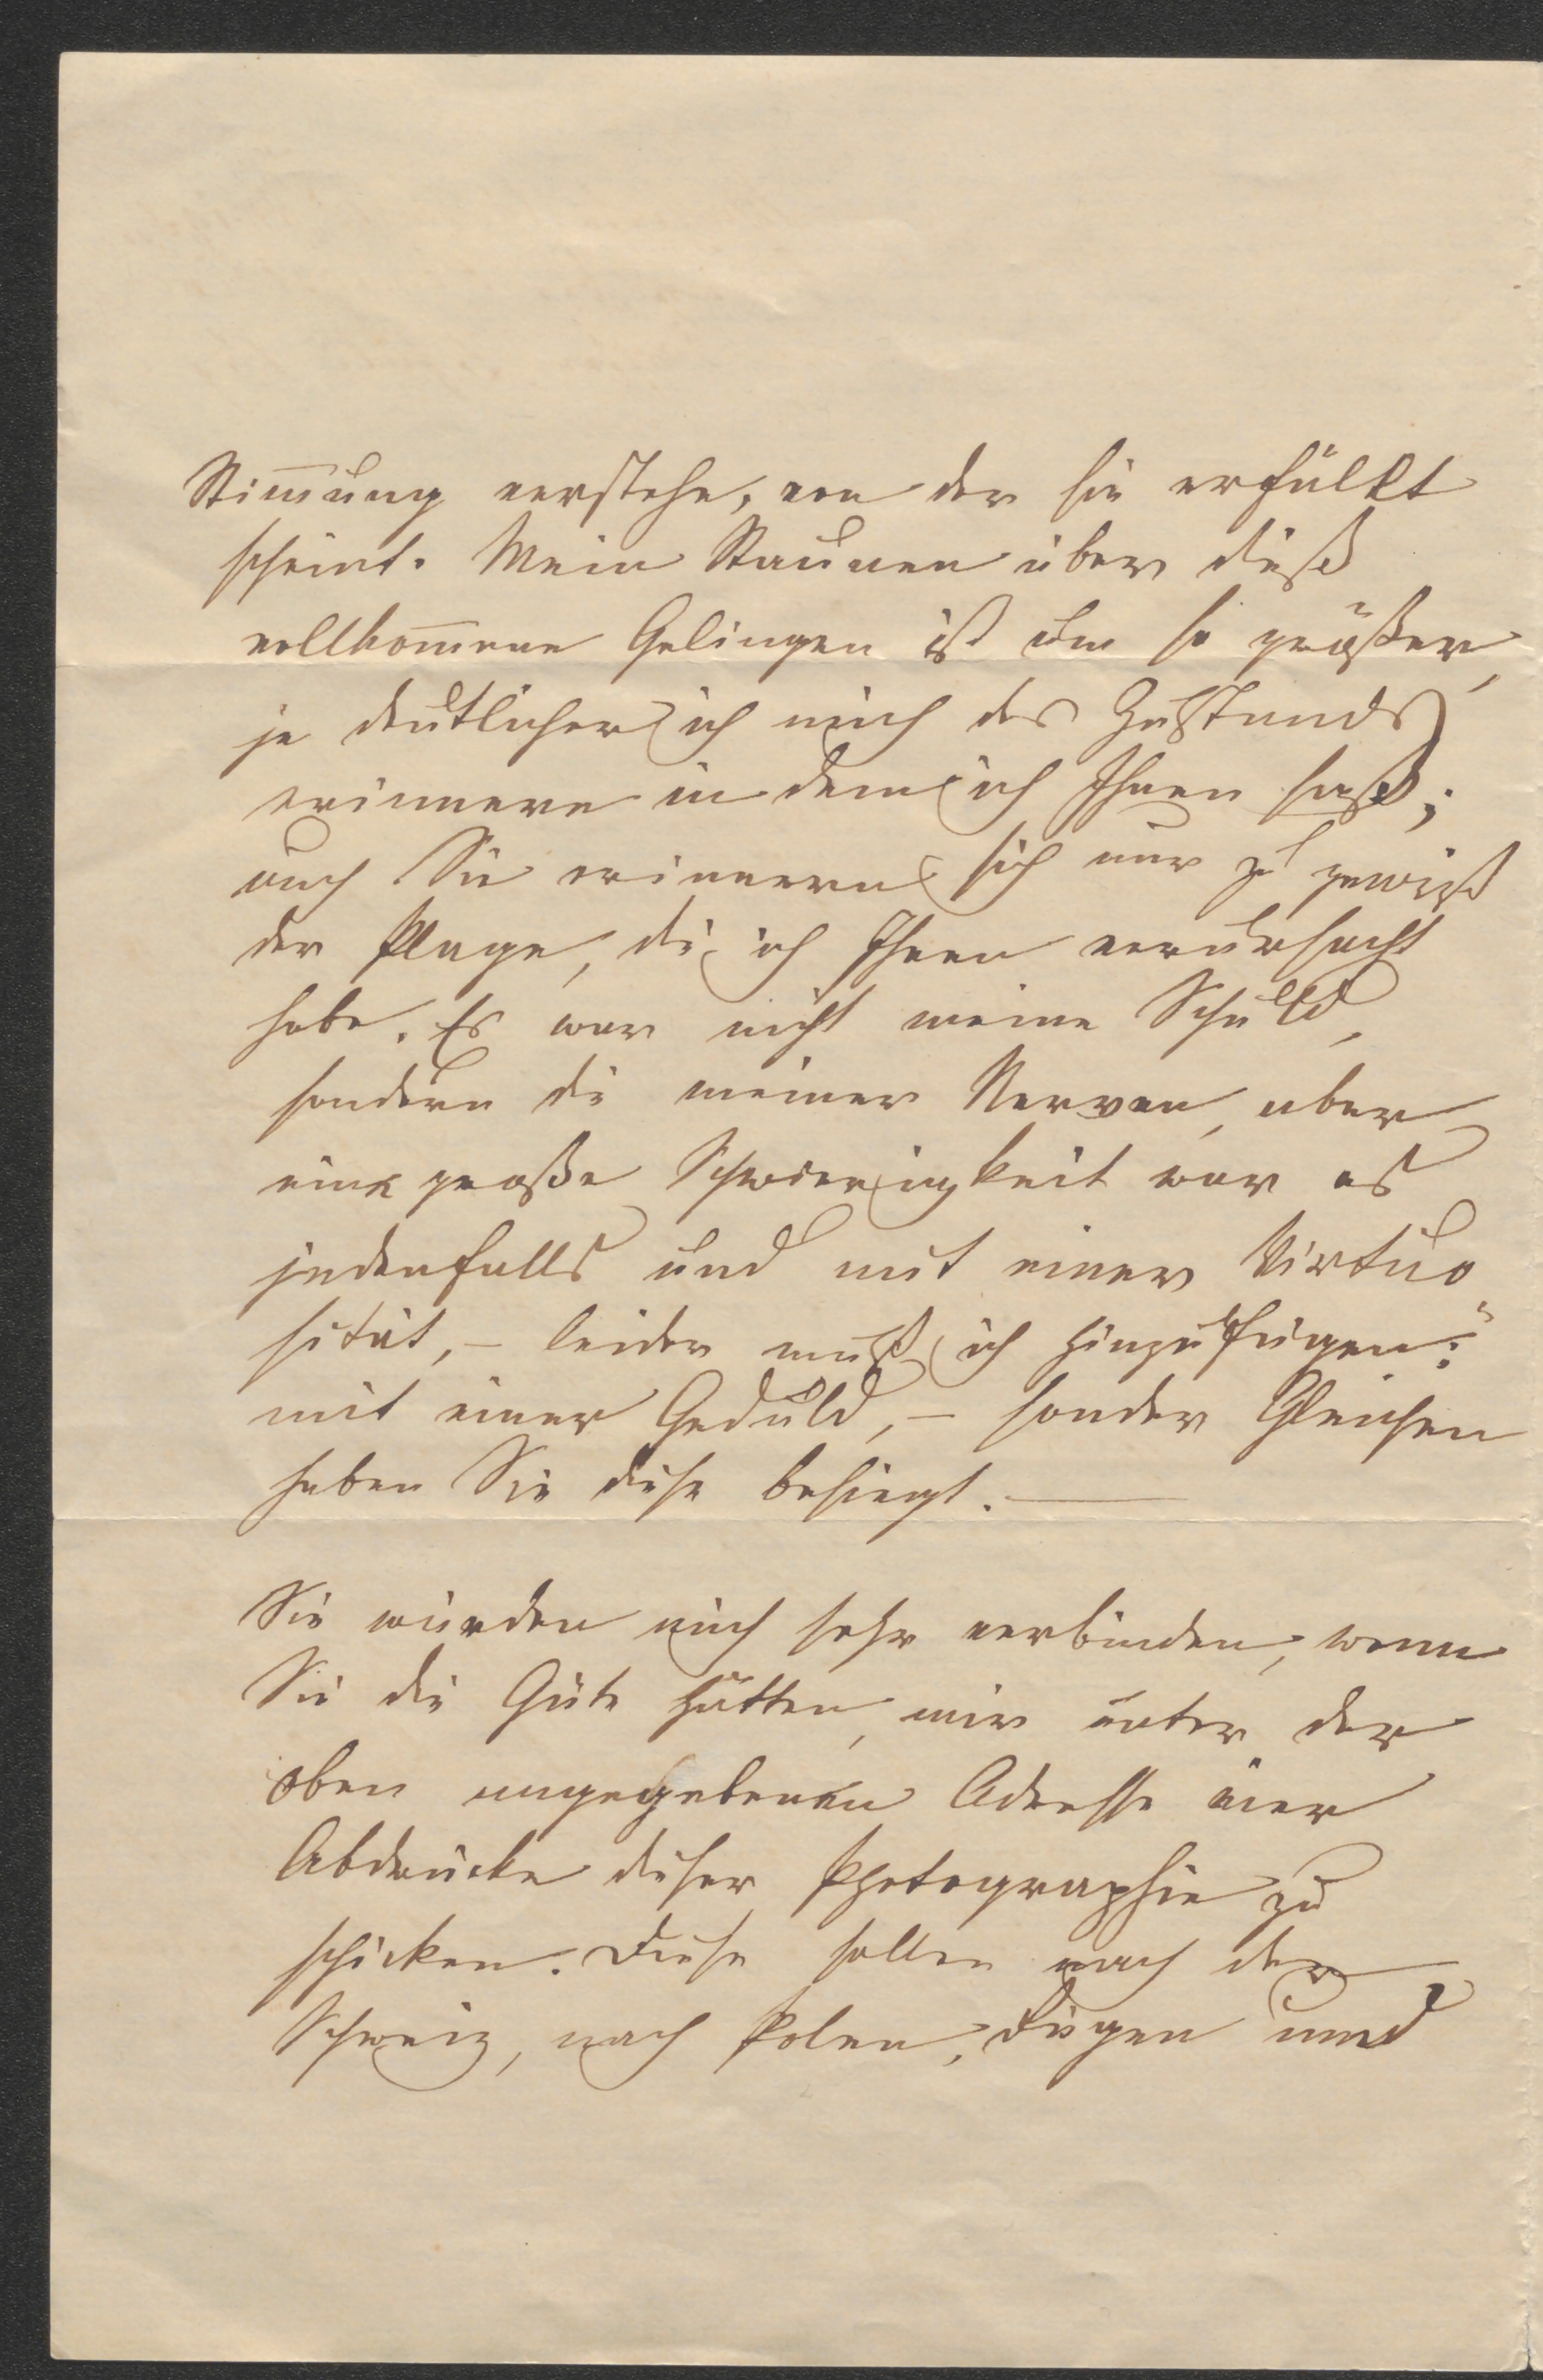 Stim̅ung verstehe, von der sie erfüllt
scheint. Mein Staunen über dieß
vollkom̅ene Gelingen ist um so größer,
je deutlicher ich mich des Zustands
erinnere in dem ich Ihnen saß;
auch Sie erinnern sich nur zu gewiß
der Plage, die ich Ihnen verursacht
habe. Es war nicht meine Schuld,
sondern die meiner Nerven, aber
eine große Schwierigkeit war es
jedenfalls und mit einer Virtuo
sität, – leider muß ich hinzufügen:
mit einer Geduld, – sonder Gleichen
haben Sie diese besiegt. —
Sie würden mich sehr verbinden, wenn
Sie die Güte hätten, mir unter der
oben angegebenen Adresse vier
Abdrücke dieser Photographie zu
schicken. Diese sollen nach der
Schweiz, nach Polen, und